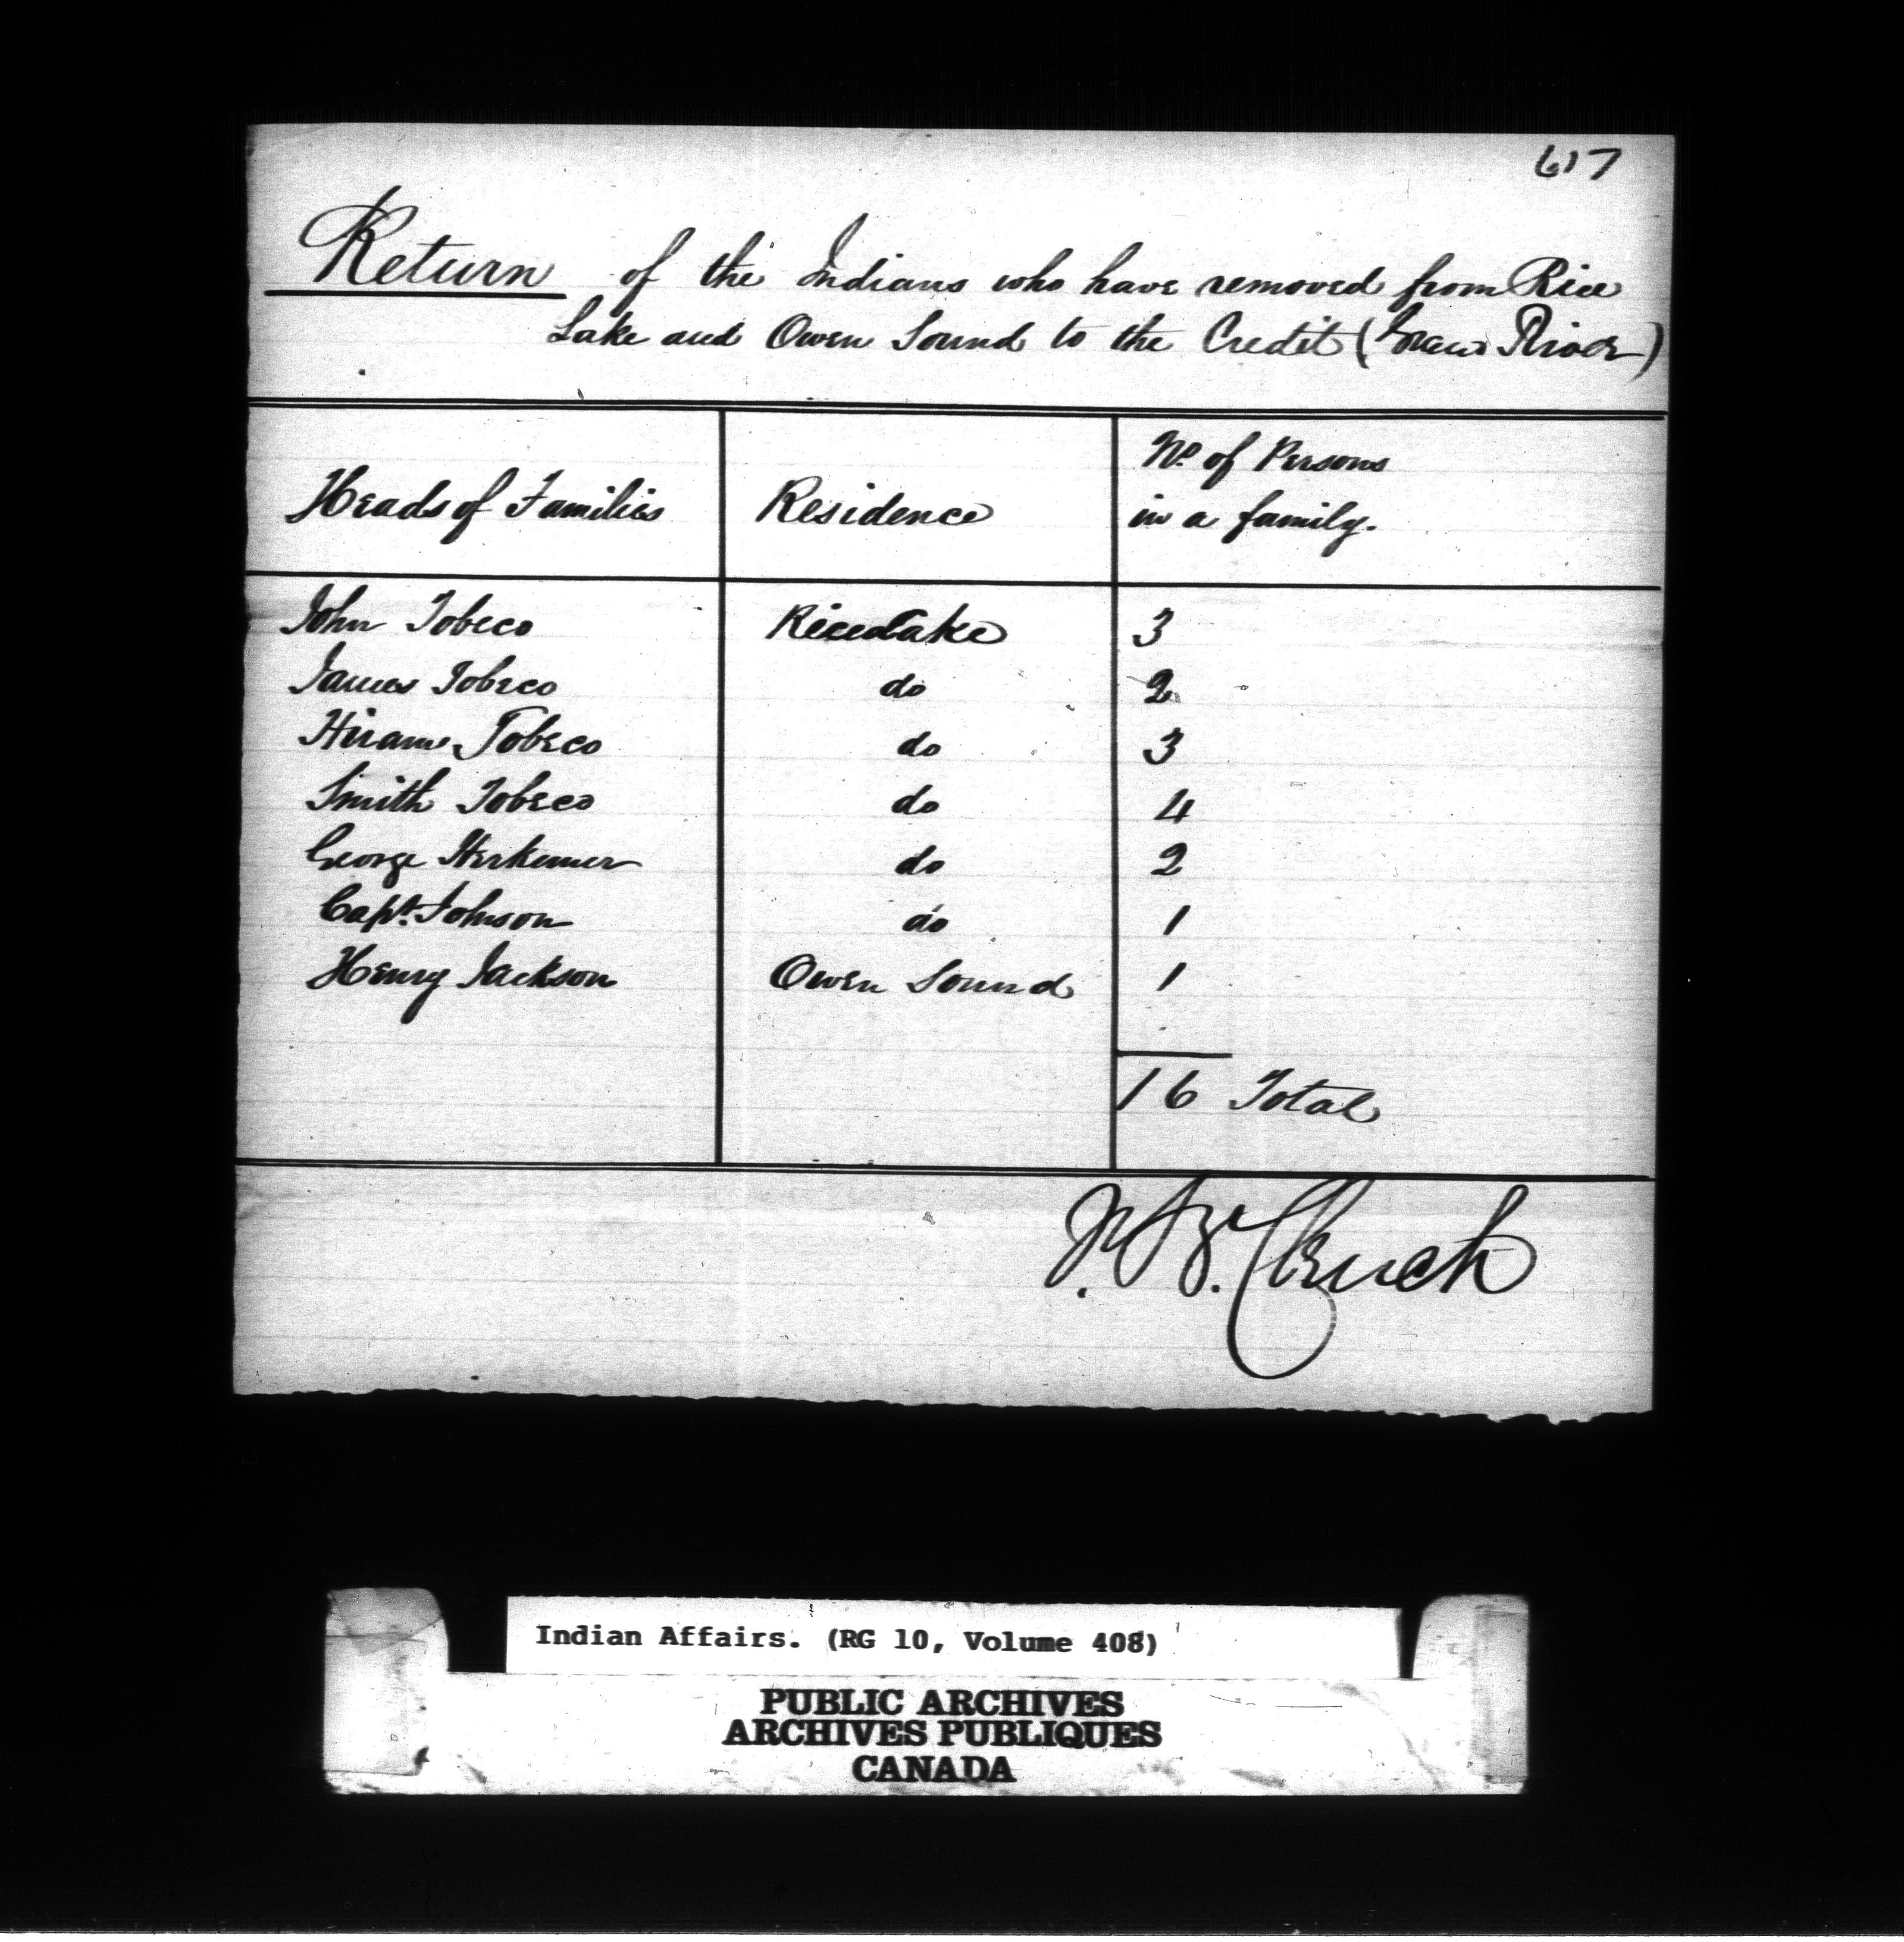 617
Return of the Indians who have removed from Rice
Lake and Owen Sound to the Credit ( River)
Heads of Families Residence No. of Persons
in a family.
John Tobeco Rice Lake 3
James Tobeco do 2
Hiram Tobeco do 3
Smith Tobeco do 4
George Herkemer do 2
Capt. Johnson do 1
Henry Jackson Owen Sound 1
16 Total
J. B. Clench
Indian Affairs. (RG 10, Volume 408)
PUBLIC ARCHIVES
ARCHIVES PUBLIQUES
CANADA